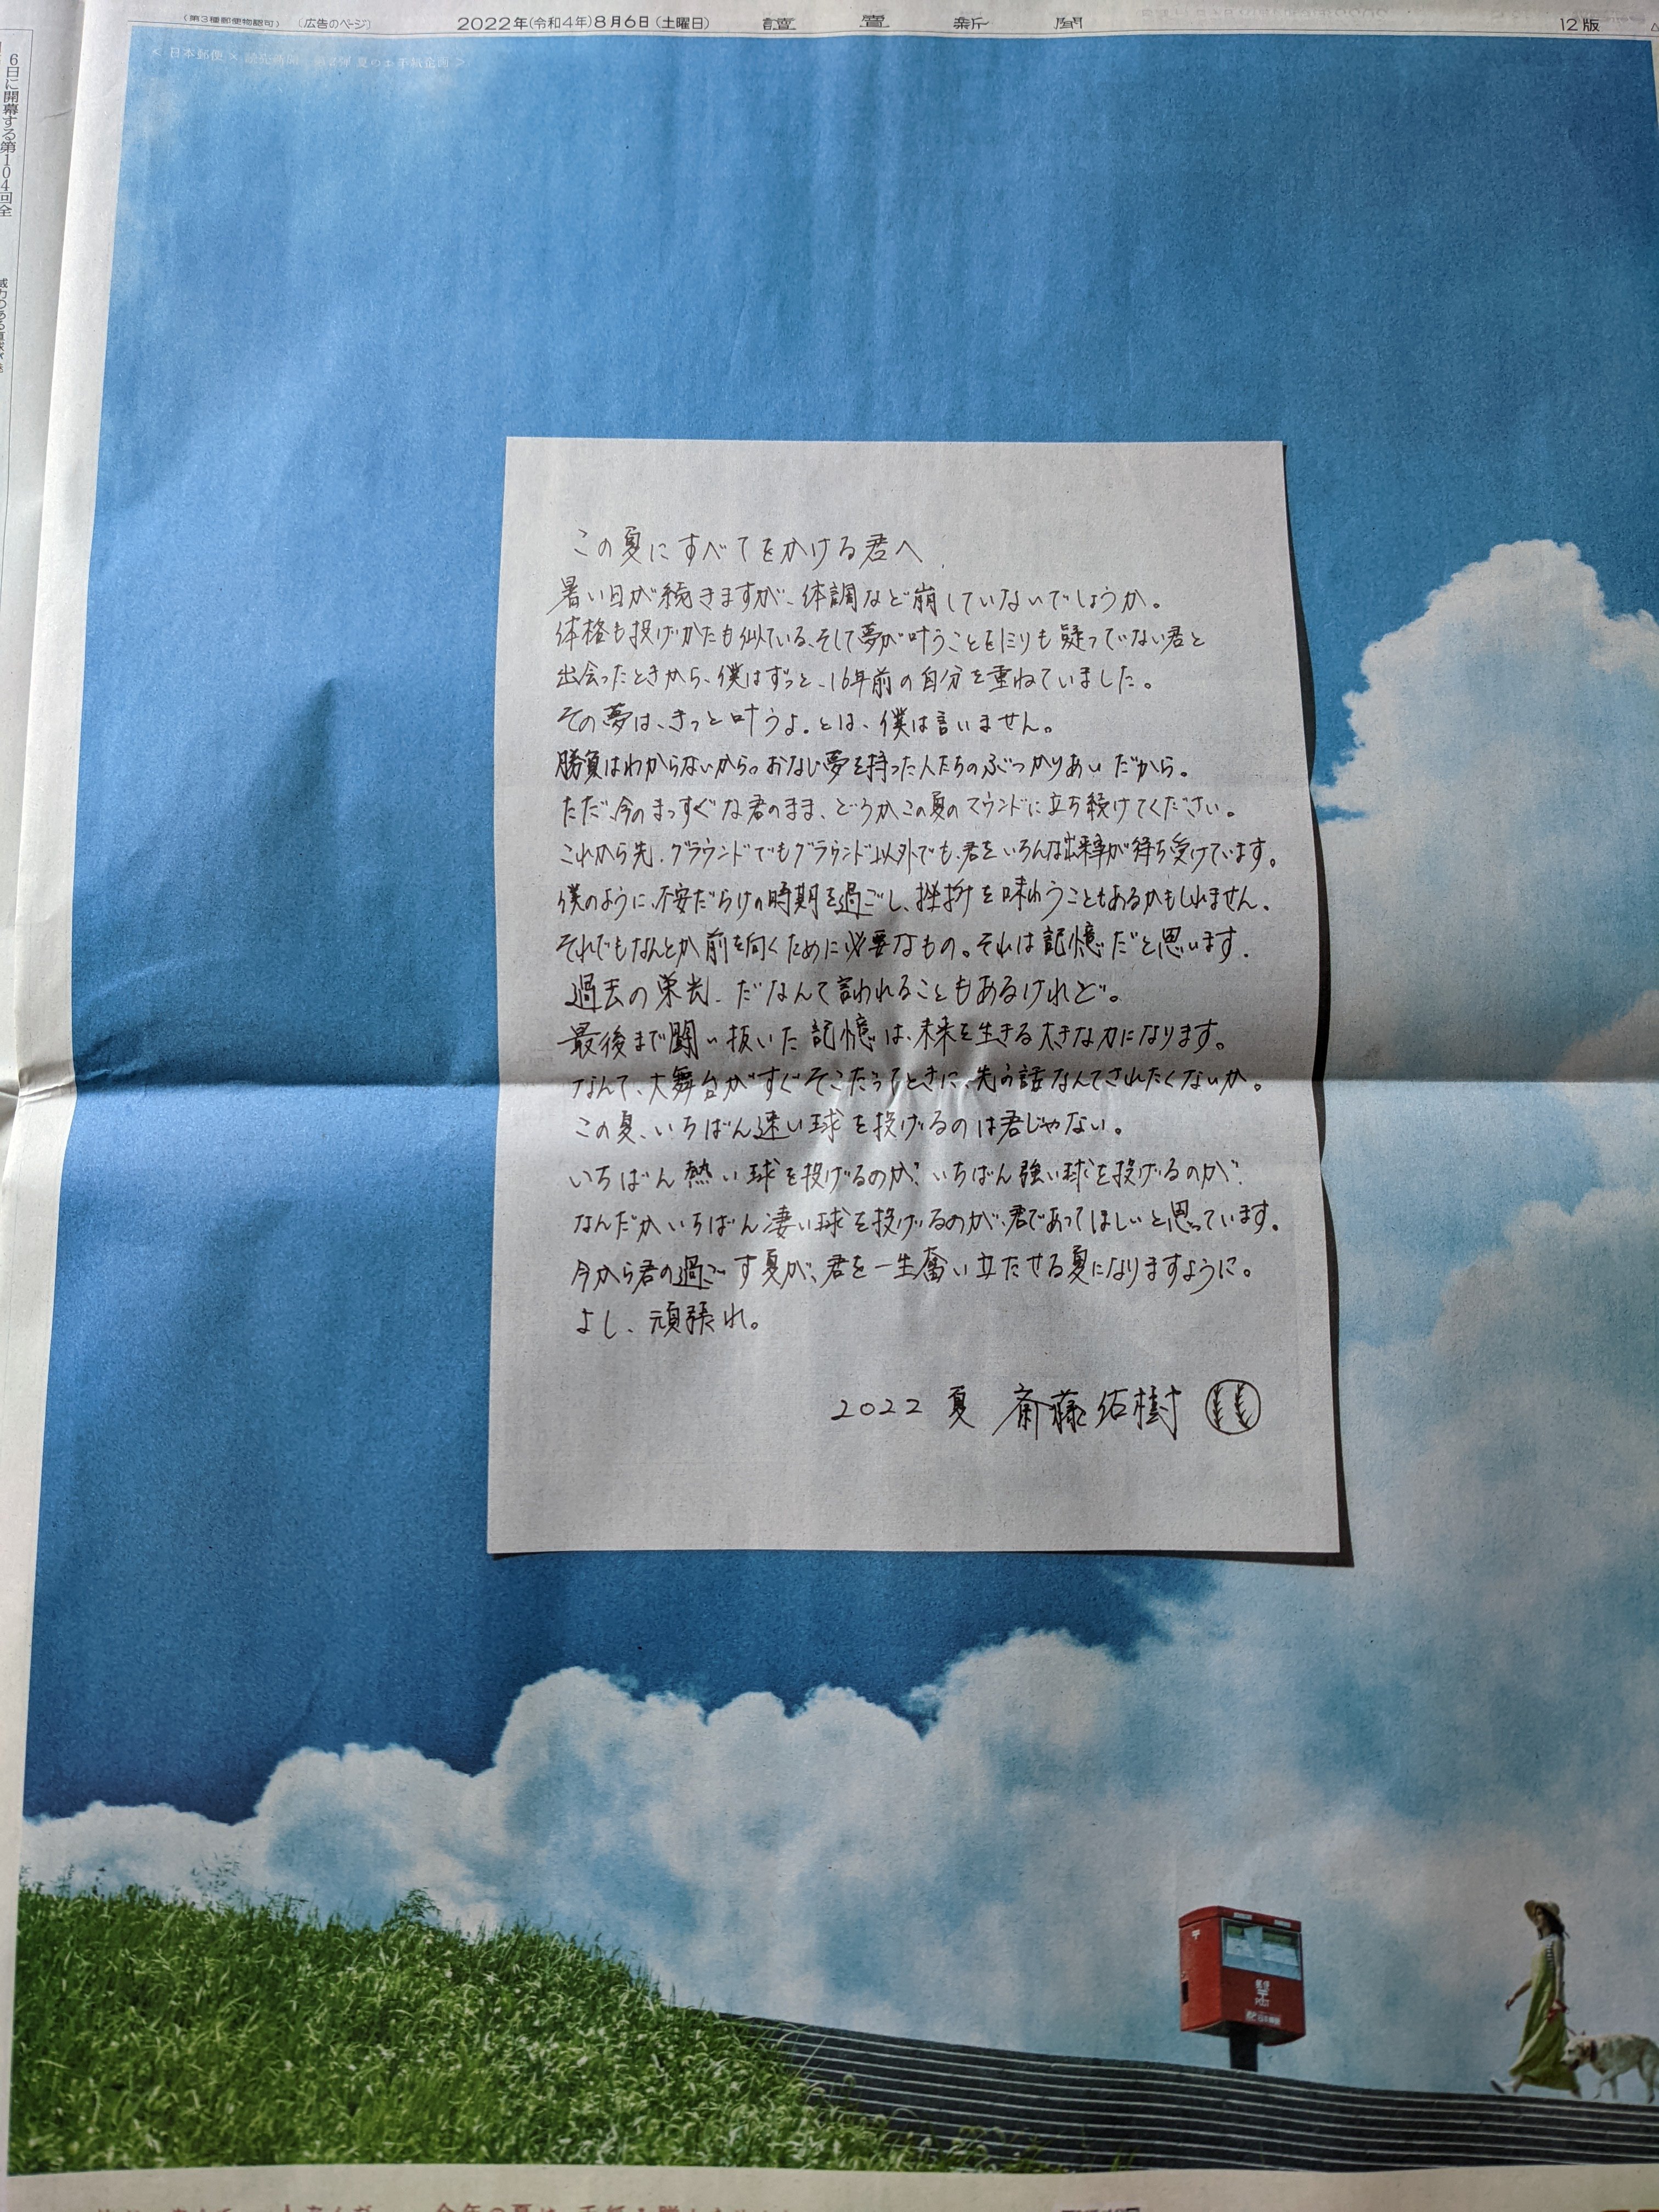 (第3種郵便物認可)
(広告のページ)
2022年(令和4年)8月6日(土曜日)
讀賣新聞
12版
6日に開幕する第104回全
<日本郵便×読売新聞 第2弾 夏のお手紙企画>
この夏にすべてをかける君へ
暑い日が続きますが、体調など崩していないでしょうか。
体格も投げかたも似ている、そして夢が叶うことを疑っていない君と
出会ったときから、僕はずっと、16年前の自分を重ねていました。
その夢は、きっと叶うよ。とは、僕は言いません。
勝負はわからないから。おなじ夢を持った人たちのぶつかりあいだから。
ただ、今のまっすぐな君のまま、どうかこの夏のマウンドに立ち続けてください。
これから先、グラウンドでもグラウンド以外でも、君をいろんな出来事が待ち受けています。
僕のように、不安だらけの時期を過ごし、挫折を味わうこともあるかもしれません。
それでもなんとか前を向くために必要なもの。それは記憶だと思います。
過去の栄光、だなんて言われることもあるけれど。
最後まで闘い抜いた記憶は、未来を生きる大きな力になります。
なんて、大舞台がすぐそこだってときに、先の話なんてされたくないか。
この夏、いちばん速い球を投げるのは君じゃない。
いちばん熱い球を投げるのか?いちばん強い球を投げるのか?
なんだかいちばん凄い球を投げるのが、君であってほしいと思っています。
今から君の過ごす夏が、君を一生奮い立たせる夏になりますように。
よし、頑張れ。
2022 夏 斎藤佑樹
郵便
〒
POST